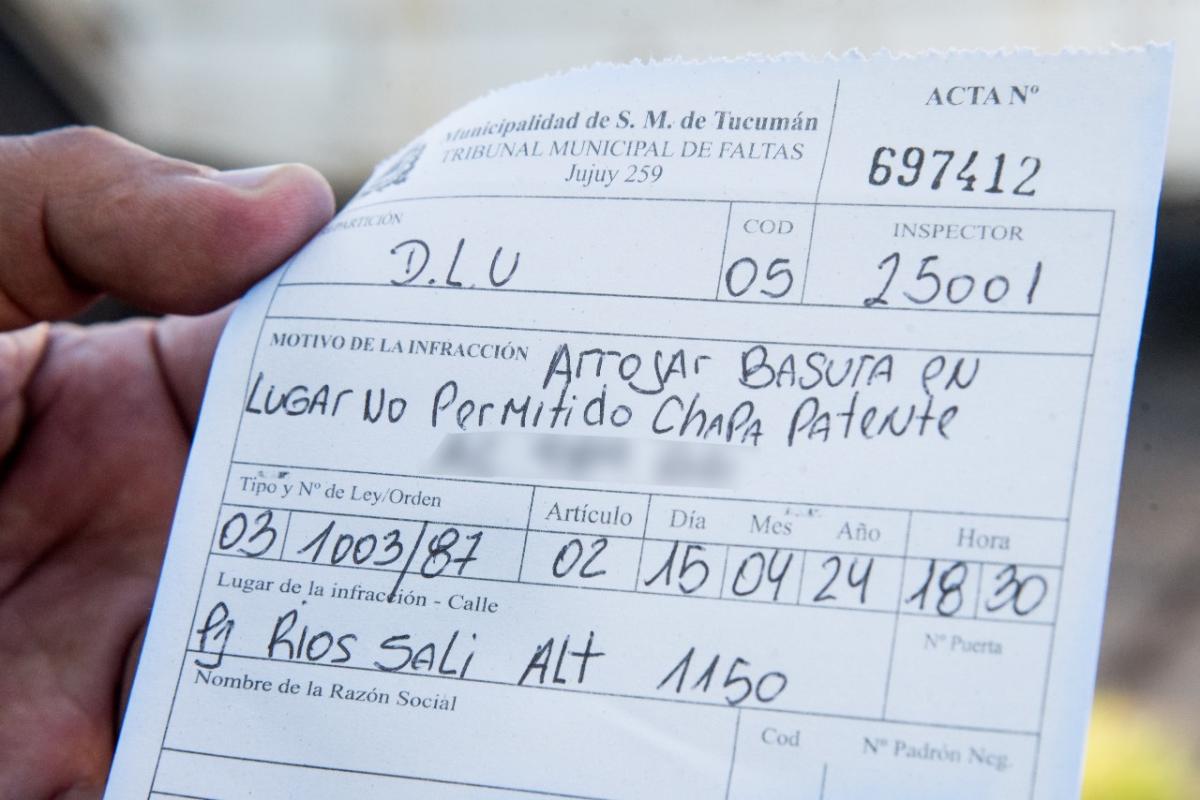 Municipalidad de S. M. de Tucumán
TRIBUNAL MUNICIPAL DE FALTAS
Jujuy 259
ACTA Nº
697412
D.L.U
COD
05
INSPECTOR
25001
MOTIVO DE LA INFRACCIÓN Arrojar BASUra en
LUGAR NO Permitido CHAPA Patente
Tipo y Nº de Ley/Orden
03 1003/87
Artículo
02
Día Mes Año
15 04 24
Hora
18 30
Lugar de la infracción - Calle
Pj Ríos SALi ALt 1150
Nº Puerta
Nombre de la Razón Social
Cod
Nº Padrón Neg.